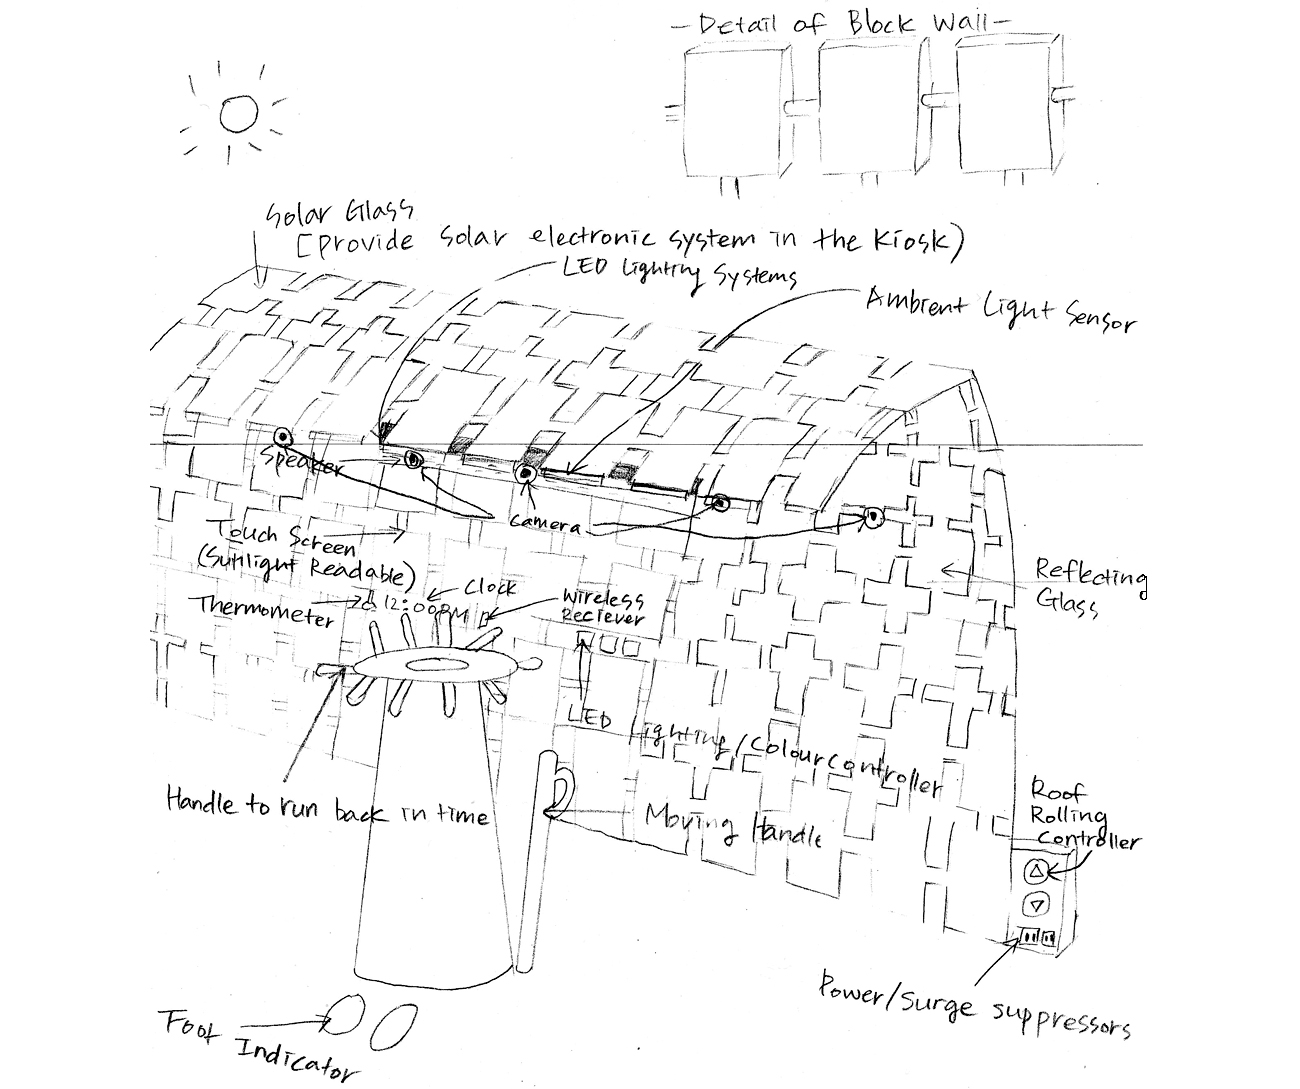 - Detail of Block Wall -
Solar Glass
[Provide solar electronic system in the Kiosk)
LED Lighting Systems
Ambient Light Sensor
Speaker
Camera
Touch Screen
(Sunlight Readable)
Clock
Thermometer
12:00PM
Wireless
Reciever
Reflecting
Glass
LED Lighting/Colour controller
Handle to run back in time
Moving Handle
Roof
Rolling
Controller
Power/Surge suppressors
Foot
Indicator